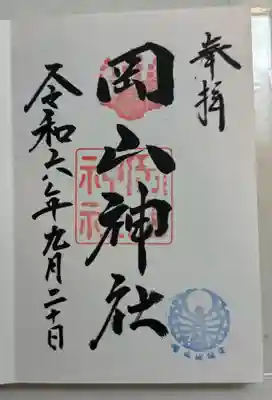 奉拝
岡山神社
令和六年九月二十日